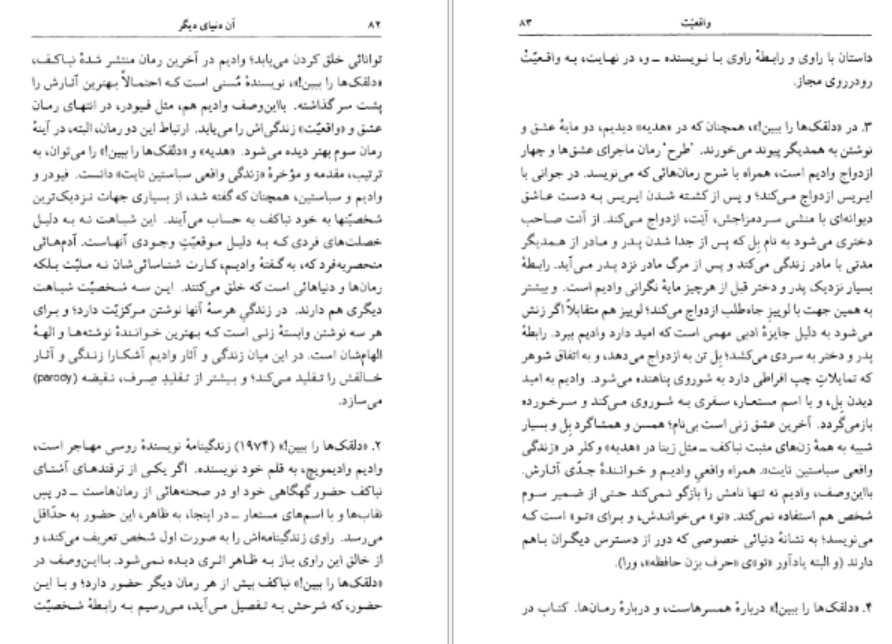 ۸۲
آن دنیای دیگر
توانائی خلق کردن می‌یابد؛ وادیم در آخرین رمان منتشر شدهٔ نباکف،
«دلقک‌ها را ببین!»، نویسندهٔ مُسنی است که احتمالاً بهترین آثارش را
پشت سر گذاشته. بااین‌وصف وادیم هم، مثل فیودر، در انتهای رمان
عشق و «واقعیّت» زندگی‌اش را می‌یابد. ارتباط این دو رمان، البته، در آینهٔ
رمان سوم بهتر دیده می‌شود. «هدیه» و «دلقک‌ها را ببین!» را می‌توان، به
ترتیب، مقدمه و مؤخرهٔ «زندگی واقعی سباستین نایت» دانست. فیودر و
وادیم و سباستین، همچنان که گفته شد، از بسیاری جهات نزدیک‌ترین
شخصیّتها به خود نباکف به حساب می‌آیند. این شباهت نه به دلیل
خصلت‌های فردی که به دلیل موقعیّتِ وجودی آنهاست. آدم‌هائی
منحصربه‌فرد که، به گفتهٔ وادیم، کارت شناسائی‌شان نه ملیّت بلکه
رمان‌ها و دنیاهائی است که خلق می‌کنند. این سه شخصیّت شباهت
دیگری هم دارند. در زندگیِ هرسهٔ آنها نوشتن مرکزیّت دارد؛ و برای
هر سه نوشتن وابستهٔ زنی است که بهترین خوانندهٔ نوشته‌ها و الههٔ
الهام‌شان است. در این میان زندگی و آثار وادیم آشکارا زندگی و آثار
خالقش را تقلید می‌کند؛ و بیشتر از تقلیدِ صِرف، نقیضه (parody)
می‌سازد.
۲. «دلقک‌ها را ببین!» (۱۹۷۴) زندگینامهٔ نویسندهٔ روسی مهاجر است،
وادیم وادیموویچ، به قلم خود نویسنده. اگر یکی از ترفندهای آشنای
نباکف حضور گهگاهی خود او در صحنه‌هائی از رمان‌هاست ـ در پسِ
نقاب‌ها و با اسم‌های مستعار ـ در اینجا، به ظاهر، این حضور به حدّاقل
می‌رسد. راوی زندگینامه‌اش را به صورت اول شخص تعریف می‌کند، و
از خالق این راوی باز به ظاهر اثری دیده نمی‌شود. بااین‌وصف در
«دلقک‌ها را ببین!» نباکف بیش از هر رمان دیگر حضور دارد؛ و با این
حضور، که شرحش به تفصیل می‌آید، می‌رسیم به رابطهٔ شخصیّت
واقعیّت
۸۳
داستان با راوی و رابطهٔ راوی با نویسنده ـ و، در نهایت، به واقعیّتْ
رودرروی مجاز.
۳. در «دلقک‌ها را ببین!»، همچنان که در «هدیه» دیدیم، دو مایهٔ عشق و
نوشتن به همدیگر پیوند می‌خورند. "طرح" رمان ماجرای عشق‌ها و چهار
ازدواج وادیم است، همراه با شرح رمان‌هائی که می‌نویسد. در جوانی با
ایریس ازدواج می‌کند؛ و پس از کشته شدن ایریس به دست عاشق
دیوانه‌ای با منشی سردمزاجش، آنِت، ازدواج می‌کند. از آنت صاحب
دختری می‌شود به نام بِل که پس از جدا شدن پدر و مادر از همدیگر
مدتی با مادر زندگی می‌کند و پس از مرگ مادر نزد پدر می‌آید. رابطهٔ
بسیار نزدیک پدر و دختر قبل از هرچیز مایهٔ نگرانی وادیم است. و بیشتر
به همین جهت با لوییزِ جاه‌طلب ازدواج می‌کند؛ لوییز هم متقابلاً اگر زنش
می‌شود به دلیل جایزهٔ ادبی مهمی است که امید دارد وادیم ببرد. رابطهٔ
پدر و دختر به سردی می‌کشد؛ بِل تن به ازدواج می‌دهد، و به اتفاق شوهر
که تمایلاتِ چپ افراطی دارد به شوروی پناهنده می‌شود. وادیم به امید
دیدن بِل، و با اسم مستعار، سفری به شوروی می‌کند و سرخورده
بازمی‌گردد. آخرین عشق زنی است بی‌نام؛ همسن و همشاگرد بِل و بسیار
شبیه به همهٔ زن‌های مثبت نباکف ـ مثل زینا در «هدیه» و کلر در «زندگی
واقعی سباستین نایت». همراه واقعیِ وادیم و خوانندهٔ جدّی آثارش.
بااین‌وصف، وادیم نه تنها نامش را بازگو نمی‌کند حتی از ضمیر سوم
شخص هم استفاده نمی‌کند. «تو» می‌خواندش، و برای «تو» است که
می‌نویسد؛ به نشانهٔ دنیائی خصوصی که دور از دسترس دیگران باهم
دارند (و البته یادآور «تو»ی «حرف بزن حافظه»، ورا).
۴. «دلقک‌ها را ببین!» دربارهٔ همسرهاست، و دربارهٔ رمان‌ها. کتاب در